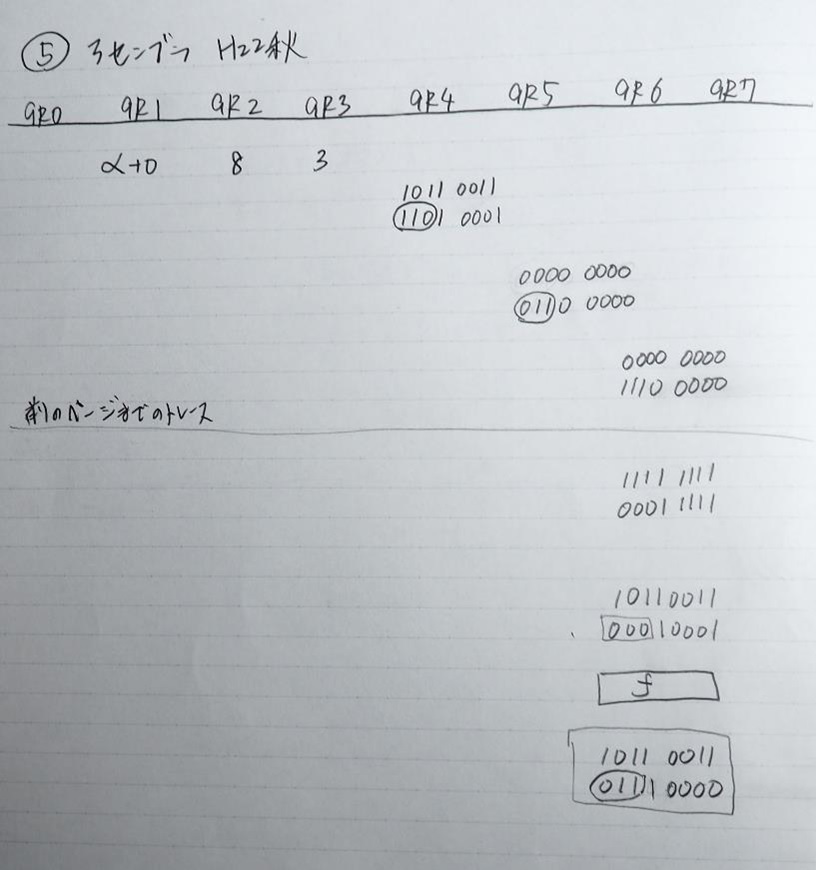 ⑤ アセンブラ H22秋
GR0 GR1 GR2 GR3 GR4 GR5 GR6 GR7
α+0 8 3
1011 0011
1101 0001
0000 0000
0110 0000
0000 0000
1110 0000
前のページまでのトレース
1111 1111
0001 1111
10110011
00010001
f
1011 0011
0111 0000